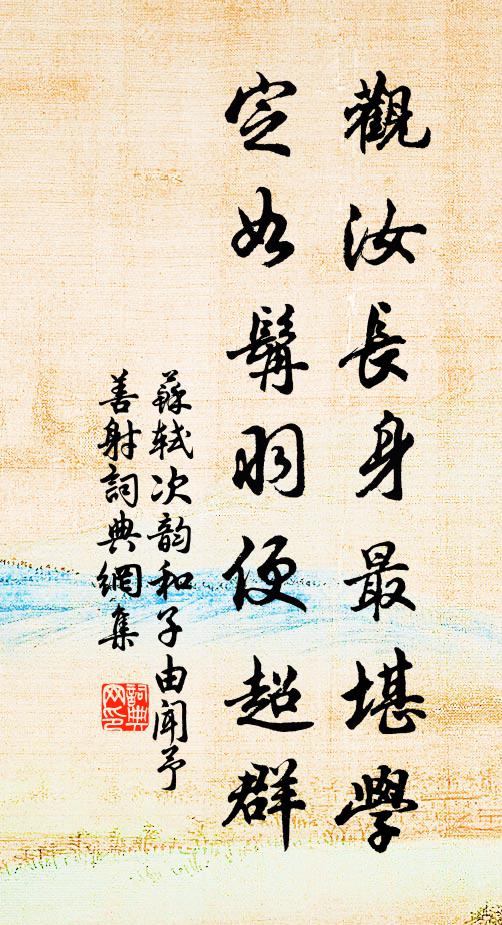 觀汝長身最堪學
定如髯羽便超群
蘇軾次韵和子由聞予
善射詞典網集
詞典
网印